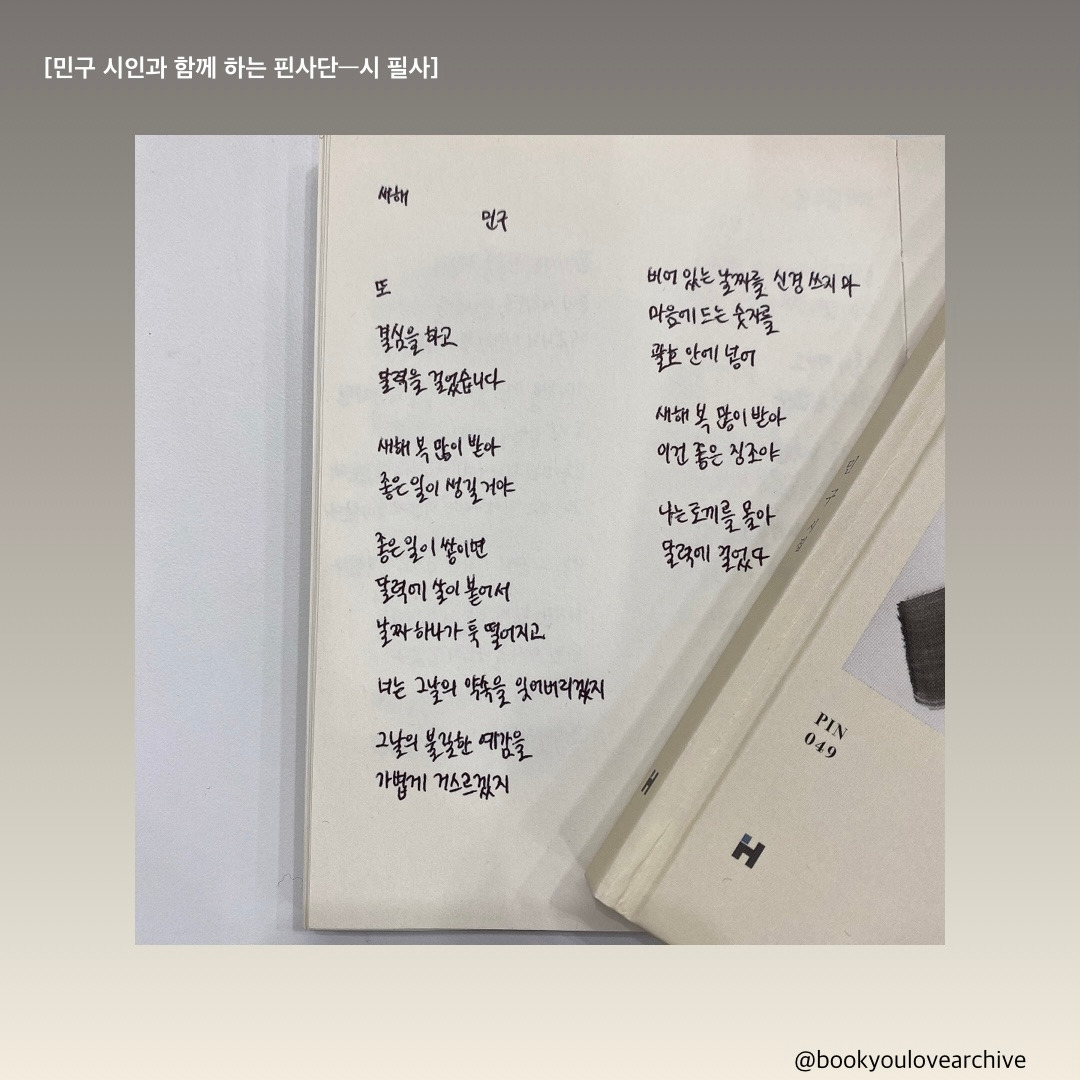 [민구 시인과 함께 하는 핀사단—시 필사]
새해
민구
또
결심을 하고
달력을 걸었습니다
새해 복 많이 받아
좋은 일이 생길 거야
좋은 일이 쌓이면
달력에 살이 붙어서
날짜 하나가 툭 떨어지고
너는 그날의 약속을 잊어버리겠지
그날의 불길한 예감을
가볍게 거스르겠지
비어 있는 날짜를 신경 쓰지 마
마음에 드는 숫자를
괄호 안에 넣어
새해 복 많이 받아
이건 좋은 징조야
나는 토끼를 몰아
달력에 걸었다
민구
PIN
049
H
@bookyoulovearchive